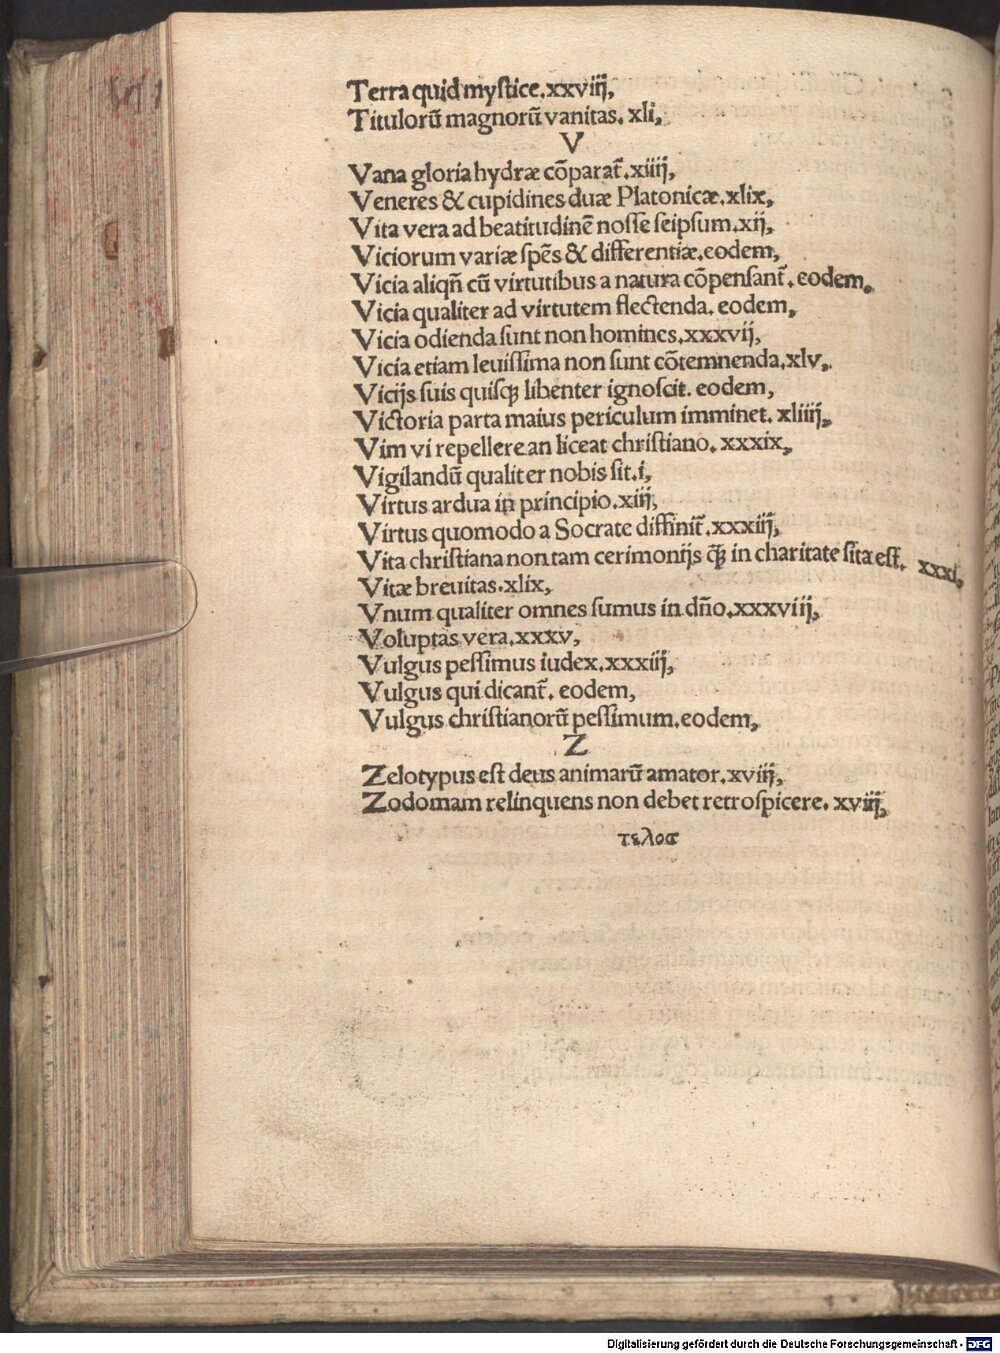 Terra quid mystice.xxviij,
Titulorū magnorū vanitas. xli,
V
Vana gloria hydræ cōparat̄.xiiij,
Veneres & cupidines duæ Platonicæ.xlix,
Vita vera ad beatitudinē nosse seipsum.xij,
Viciorum variæ spēs & differentiæ.eodem,
Vicia aliqñ cū virtutibus a natura cōpensant̄.eodem,
Vicia qualiter ad virtutem flectenda. eodem,
Vicia odienda sunt non homines.xxxvij,
Vicia etiam leuissima non sunt cōtemnenda.xlv,
Vicijs suis quisqꝫ libenter ignoscit. eodem,
Victoria parta maius periculum imminet. xliiij,
Vim vi repellere an liceat christiano. xxxix,
Vigilandū qualiter nobis sit.i,
Virtus ardua in principio.xiij,
Virtus quomodo a Socrate diffinit̄.xxxiij,
Vita christiana non tam cerimonijs q̄ꝫ in charitate sita est. xxxi,
Vitæ breuitas.xlix,
Vnum qualiter omnes sumus in dño.xxxviij,
Voluptas vera.xxxv,
Vulgus pessimus iudex.xxxiij,
Vulgus qui dicant̄. eodem,
Vulgus christianorū pessimum.eodem,
Z
Zelotypus est deus animarū amator.xviij,
Zodomam relinquens non debet retrospicere. xviij,
τελοσ
Digitalisierung gefördert durch die Deutsche Forschungsgemeinschaft - DFG